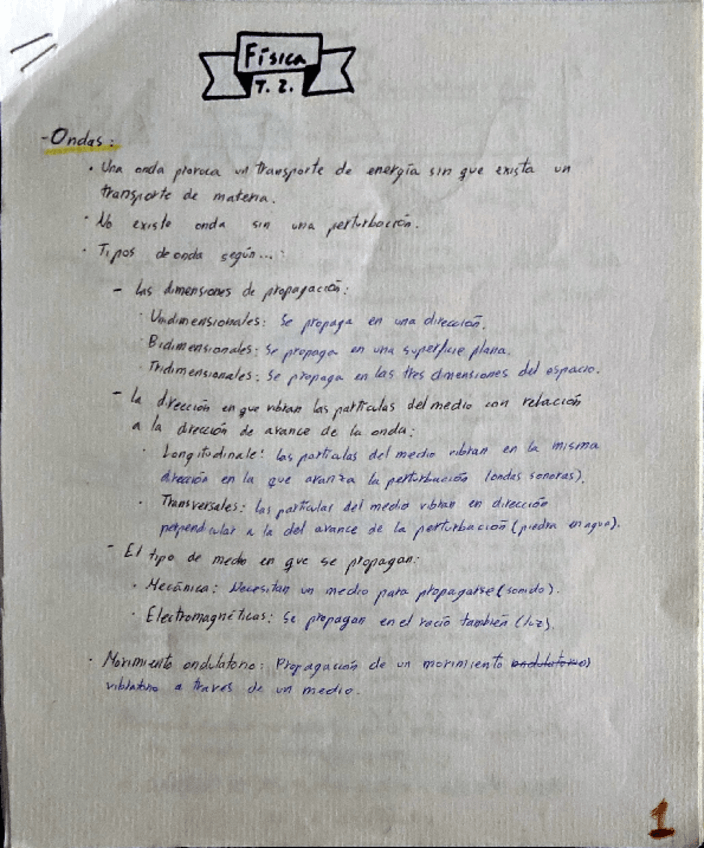 Física
T. 2.
- Ondas:
• Una onda provoca un transporte de energía sin que exista un
transporte de materia.
• No existe onda sin una perturbación.
• Tipos de onda según...:
- Las dimensiones de propagación:
• Unidimensionales: Se propaga en una dirección.
• Bidimensionales: Se propaga en una superficie plana.
• Tridimensionales: Se propaga en las tres dimensiones del espacio.
- La dirección en que vibran las partículas del medio con relación
a la dirección de avance de la onda:
• Longitudinale: las partículas del medio vibran en la misma
dirección en la que avanza la perturbación (ondas sonoras).
• Transversales: las partículas del medio vibran en dirección
perpendicular a la del avance de la perturbación (piedra en agua).
- El tipo de medio en que se propagan:
• Mecánica: Necesitan un medio para propagarse (sonido).
• Electromagnéticas: Se propagan en el vacío también (luz).
• Movimiento ondulatorio: Propagación de un movimiento ondulatorio
vibratorio a través de un medio.
1